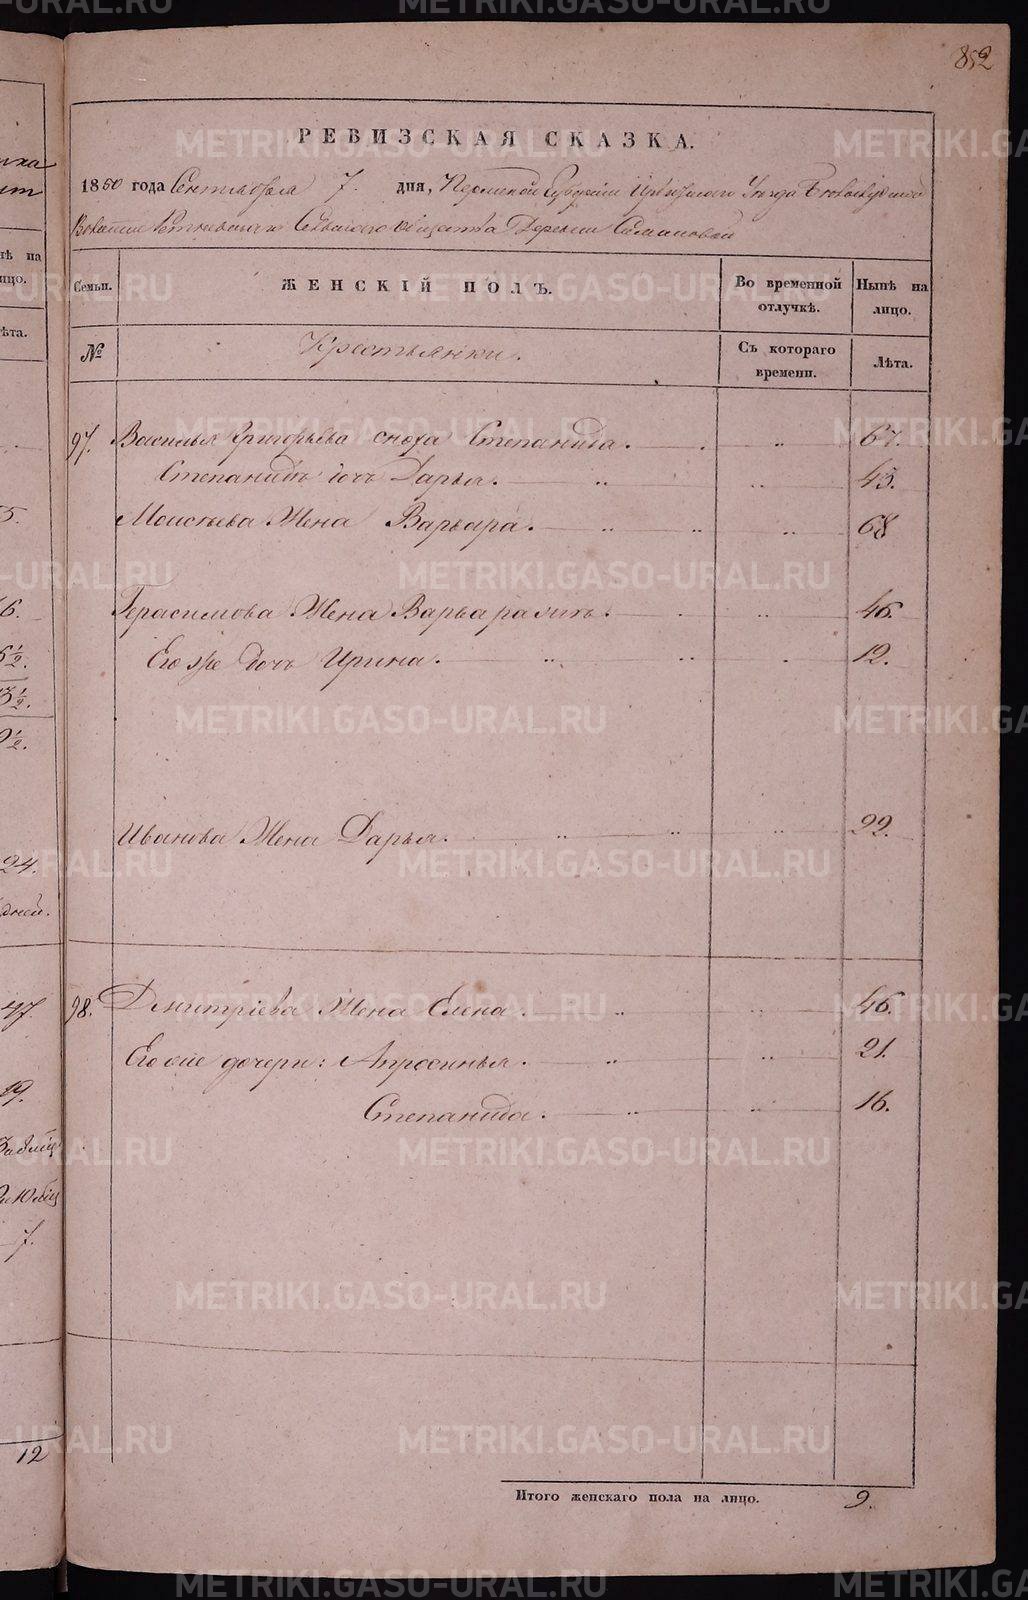 852
РЕВИЗСКАЯ СКАЗКА.
1850 года Сентября 7. дня, Пермской Губернии Ирбитскаго Уѣзда
Волости Сельскаго общества Деревни Симановой
Семьи. ЖЕНСКІЙ ПОЛЪ. Во временной отлучкѣ. Нынѣ на лицо.
№ Крестьянки. Съ котораго времени. Лѣта.
97. Василья Григорьева сноха Степанида. 67.
Степаниды дочь Дарья. 45.
Моисеева Жена Варвара. 68
Герасимова Жена Варвара 46.
Его же дочь Ирина. 12.
Иванова Жена Дарья. 22.
98. Дмитріева Жена Елена. 46.
Его же дочери: Апросинья. 21.
Степанида. 16.
Итого женскаго пола на лицо. 9.
нѣ на
ицо.
ѣта.
5.
6.
5½.
3½.
9½.
24.
дней.
47.
19.
7.
12
METRIKI.GASO-URAL.RU